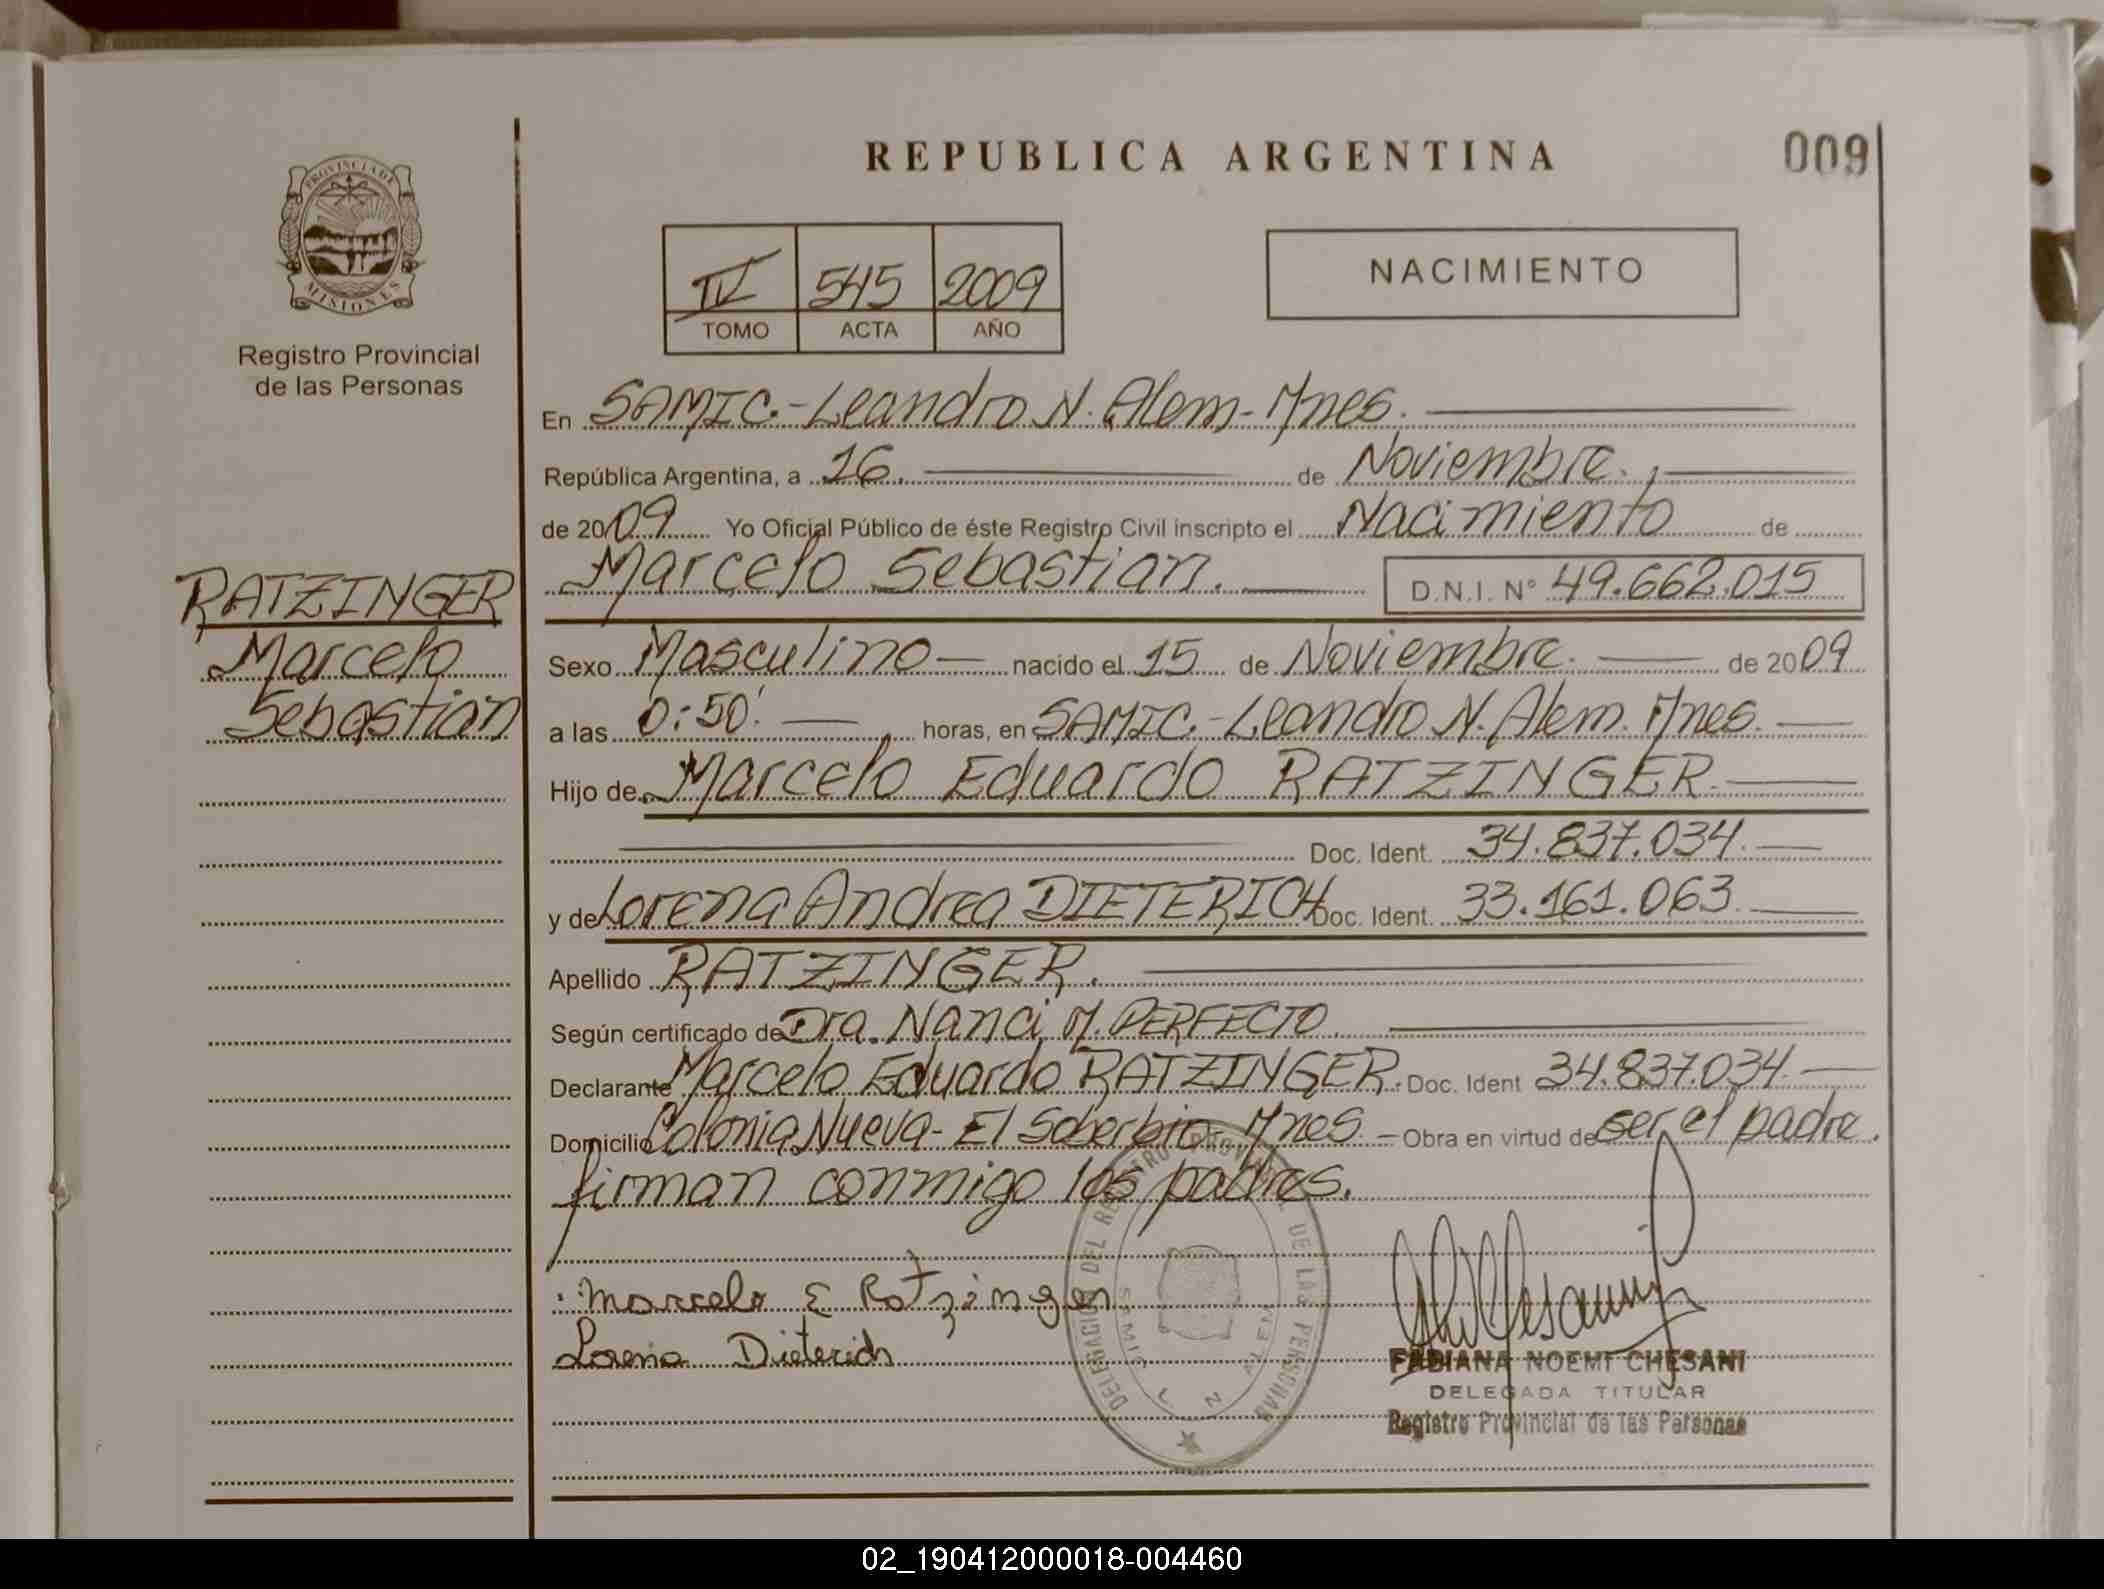 REPUBLICA ARGENTINA
009
PROVINCIA DE
MISIONES
Registro Provincial
de las Personas
IV 545 2009
TOMO ACTA AÑO
NACIMIENTO
En SAMIC.-Leandro N. Alem-Mnes.
República Argentina, a 16. de Noviembre.
de 2009 Yo Oficial Público de éste Registro Civil inscripto el Nacimiento de
Marcelo Sebastian. D.N.I. N° 49.662.015
RATZINGER
Marcelo
Sebastian
Sexo Masculino nacido el 15 de Noviembre. de 2009
a las 0:50'. horas, en SAMIC.-Leandro N. Alem. Mnes.
Hijo de Marcelo Eduardo RATZINGER.
Doc. Ident. 34.837.034.
y de Lorena Andrea DIETERICH Doc. Ident. 33.161.063
Apellido RATZINGER.
Según certificado de Dra. Nanci M. PERFECTO.
Declarante Marcelo Eduardo RATZINGER. Doc. Ident 34.837.034.
Domicilio Colonia Nueva- El Soberbio- Mnes. - Obra en virtud de ser el padre.
firman conmigo los padres.
Marcelo E Ratzinger
Lorena Dieterich
DELEGACION DEL REGISTRO PROVINCIAL DE LAS PERSONAS
SAMIC L N ALEM
FABIANA NOEMI CHESANI
DELEGADA TITULAR
Registro Provincial de las Personas
02_190412000018-004460